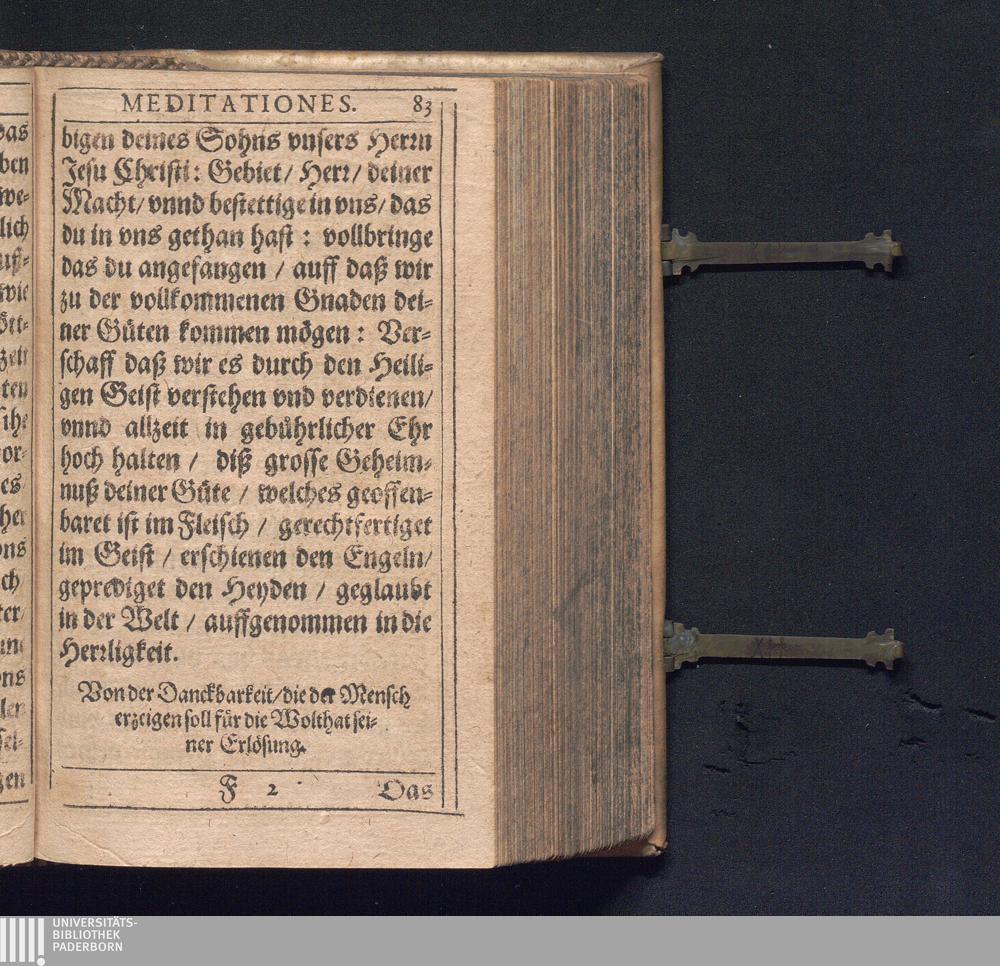 MEDITATIONES. 83
bigen deines Sohns vnsers Herrn
Jesu Christi: Gebiet / Herr / deiner
Macht / vnnd bestettige in vns / das
du in vns gethan hast : vollbringe
das du angefangen / auff daß wir
zu der vollkommenen Gnaden dei-
ner Güten kommen mögen : Ver-
schaff daß wir es durch den Heili-
gen Geist verstehen vnd verdienen /
vnnd allzeit in gebührlicher Ehr
hoch halten / diß grosse Geheim-
nuß deiner Güte / welches geoffen-
baret ist im Fleisch / gerechtfertiget
im Geist / erschienen den Engeln /
geprediget den Heyden / geglaubt
in der Welt / auffgenommen in die
Herrligkeit.
Von der Danckbarkeit / die der Mensch
erzeigen soll für die Wolthat sei-
ner Erlösung.
F 2 Das
das
ben
we-
lich
wie
ött-
zeit
ten
or-
es
vns
ch
ter
vns
sei-
gen
UNIVERSITÄTS-
BIBLIOTHEK
PADERBORN